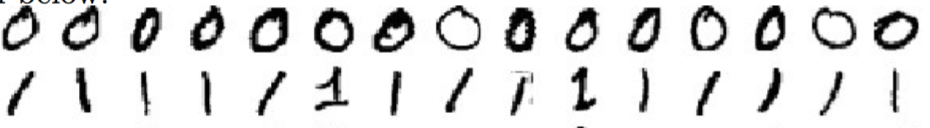 below.
0 0 0 0 0 0 0 0 0 0 0 0 0 0 0
1 1 1 1 1 1 1 1 1 1 1 1 1 1 1